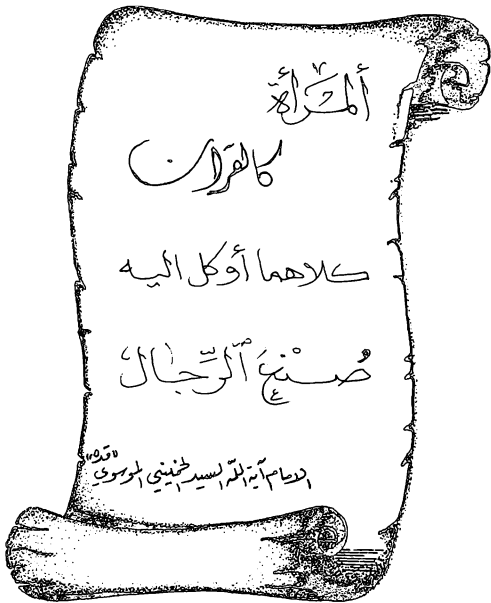 ألمرأة
كالقران
كلاهما أوكل اليه
صُنْعَ ٱلرِّجال
الامام آية اللّه السيد الخميني الموسوي "قده"